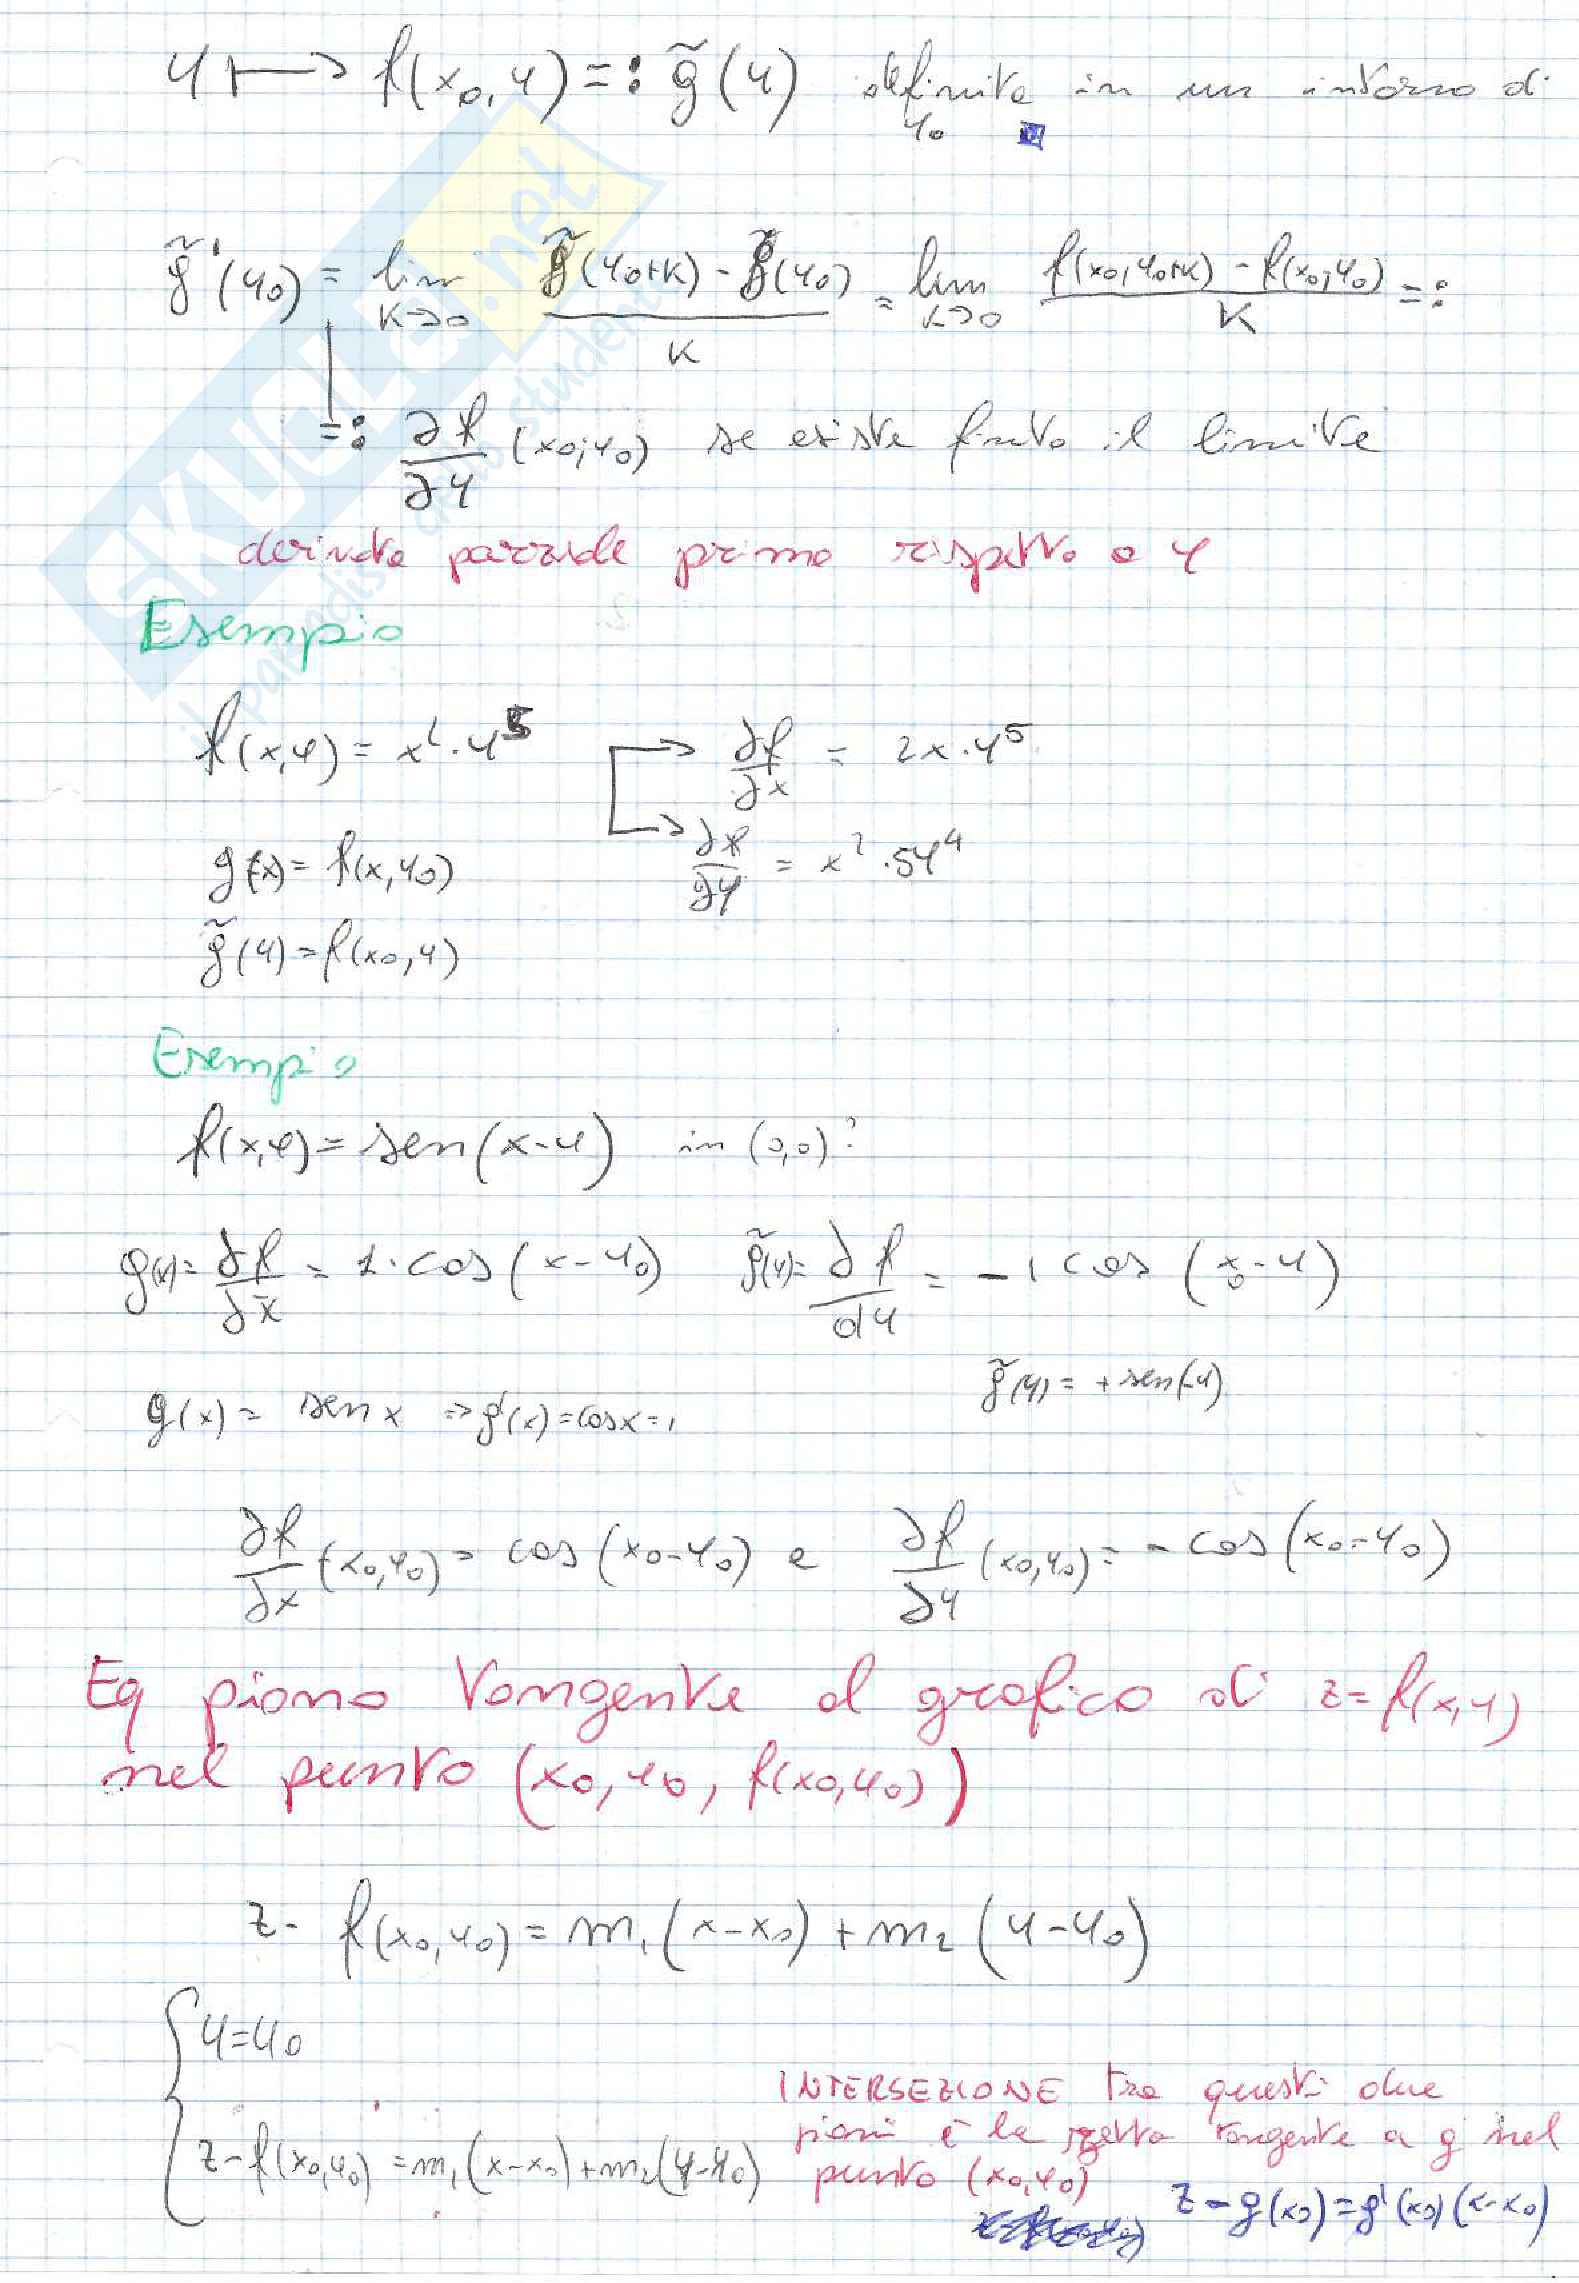 y ⟼ f(x₀,y) =: g̃(y) definite in un intorno di
y₀
g̃'(y₀) = lim_{K→0} (g̃(y₀+K) - g̃(y₀))/K = lim_{K→0} (f(x₀,y₀+K) - f(x₀,y₀))/K =:
=: ∂f/∂y (x₀,y₀) se esiste finito il limite
derivata parziale prima rispetto a y
Esempio
f(x,y) = x²·y⁵ → ∂f/∂x = 2x·y⁵
→ ∂f/∂y = x²·5y⁴
g(x) = f(x,y₀)
g̃(y) = f(x₀,y)
Esempio
f(x,y) = sen(x-y) in (0,0)?
g(x) = ∂f/∂x = 1·cos(x-y₀) g̃(y) = ∂f/dy = -1 cos(x₀-y)
g̃(y) = +sen(-y)
g(x) = sen x ⇒ g'(x) = cos x = 1
∂f/∂x (x₀,y₀) = cos(x₀-y₀) e ∂f/∂y (x₀,y₀) = -cos(x₀-y₀)
Eq piano tangente al grafico di z = f(x,y)
nel punto (x₀,y₀,f(x₀,y₀))
z - f(x₀,y₀) = m₁(x-x₀) + m₂(y-y₀)
{ y = y₀
z - f(x₀,y₀) = m₁(x-x₀) + m₂(y-y₀)
INTERSEZIONE tra questi due
piani è la retta tangente a g nel
punto (x₀,y₀)
z - g(x₀) = g'(x₀)(x-x₀)
SKUOLA.net
il paradiso dello studente